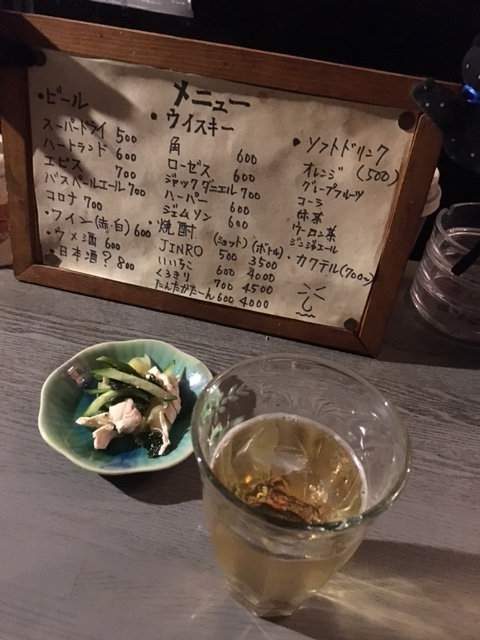 メニュー
・ビール
スーパードライ 500
ハートランド 600
エビス 700
バスペールエール 700
コロナ 700
・ワイン(赤・白) 600
・ウメ酒 600
・日本酒? 800
・ウイスキー
角 600
ローゼス 600
ジャックダニエル 700
ハーパー 600
ジェムソン 600
・焼酎 (ショット) (ボトル)
JINRO 500 3500
いいちこ 600 4000
くろきり 700 4500
たんたかたーん 600 4000
・ソフトドリンク (500)
オレンジ
グレープフルーツ
コーラ
緑茶
ウーロン茶
ジンジャエール
・カクテル(700~)